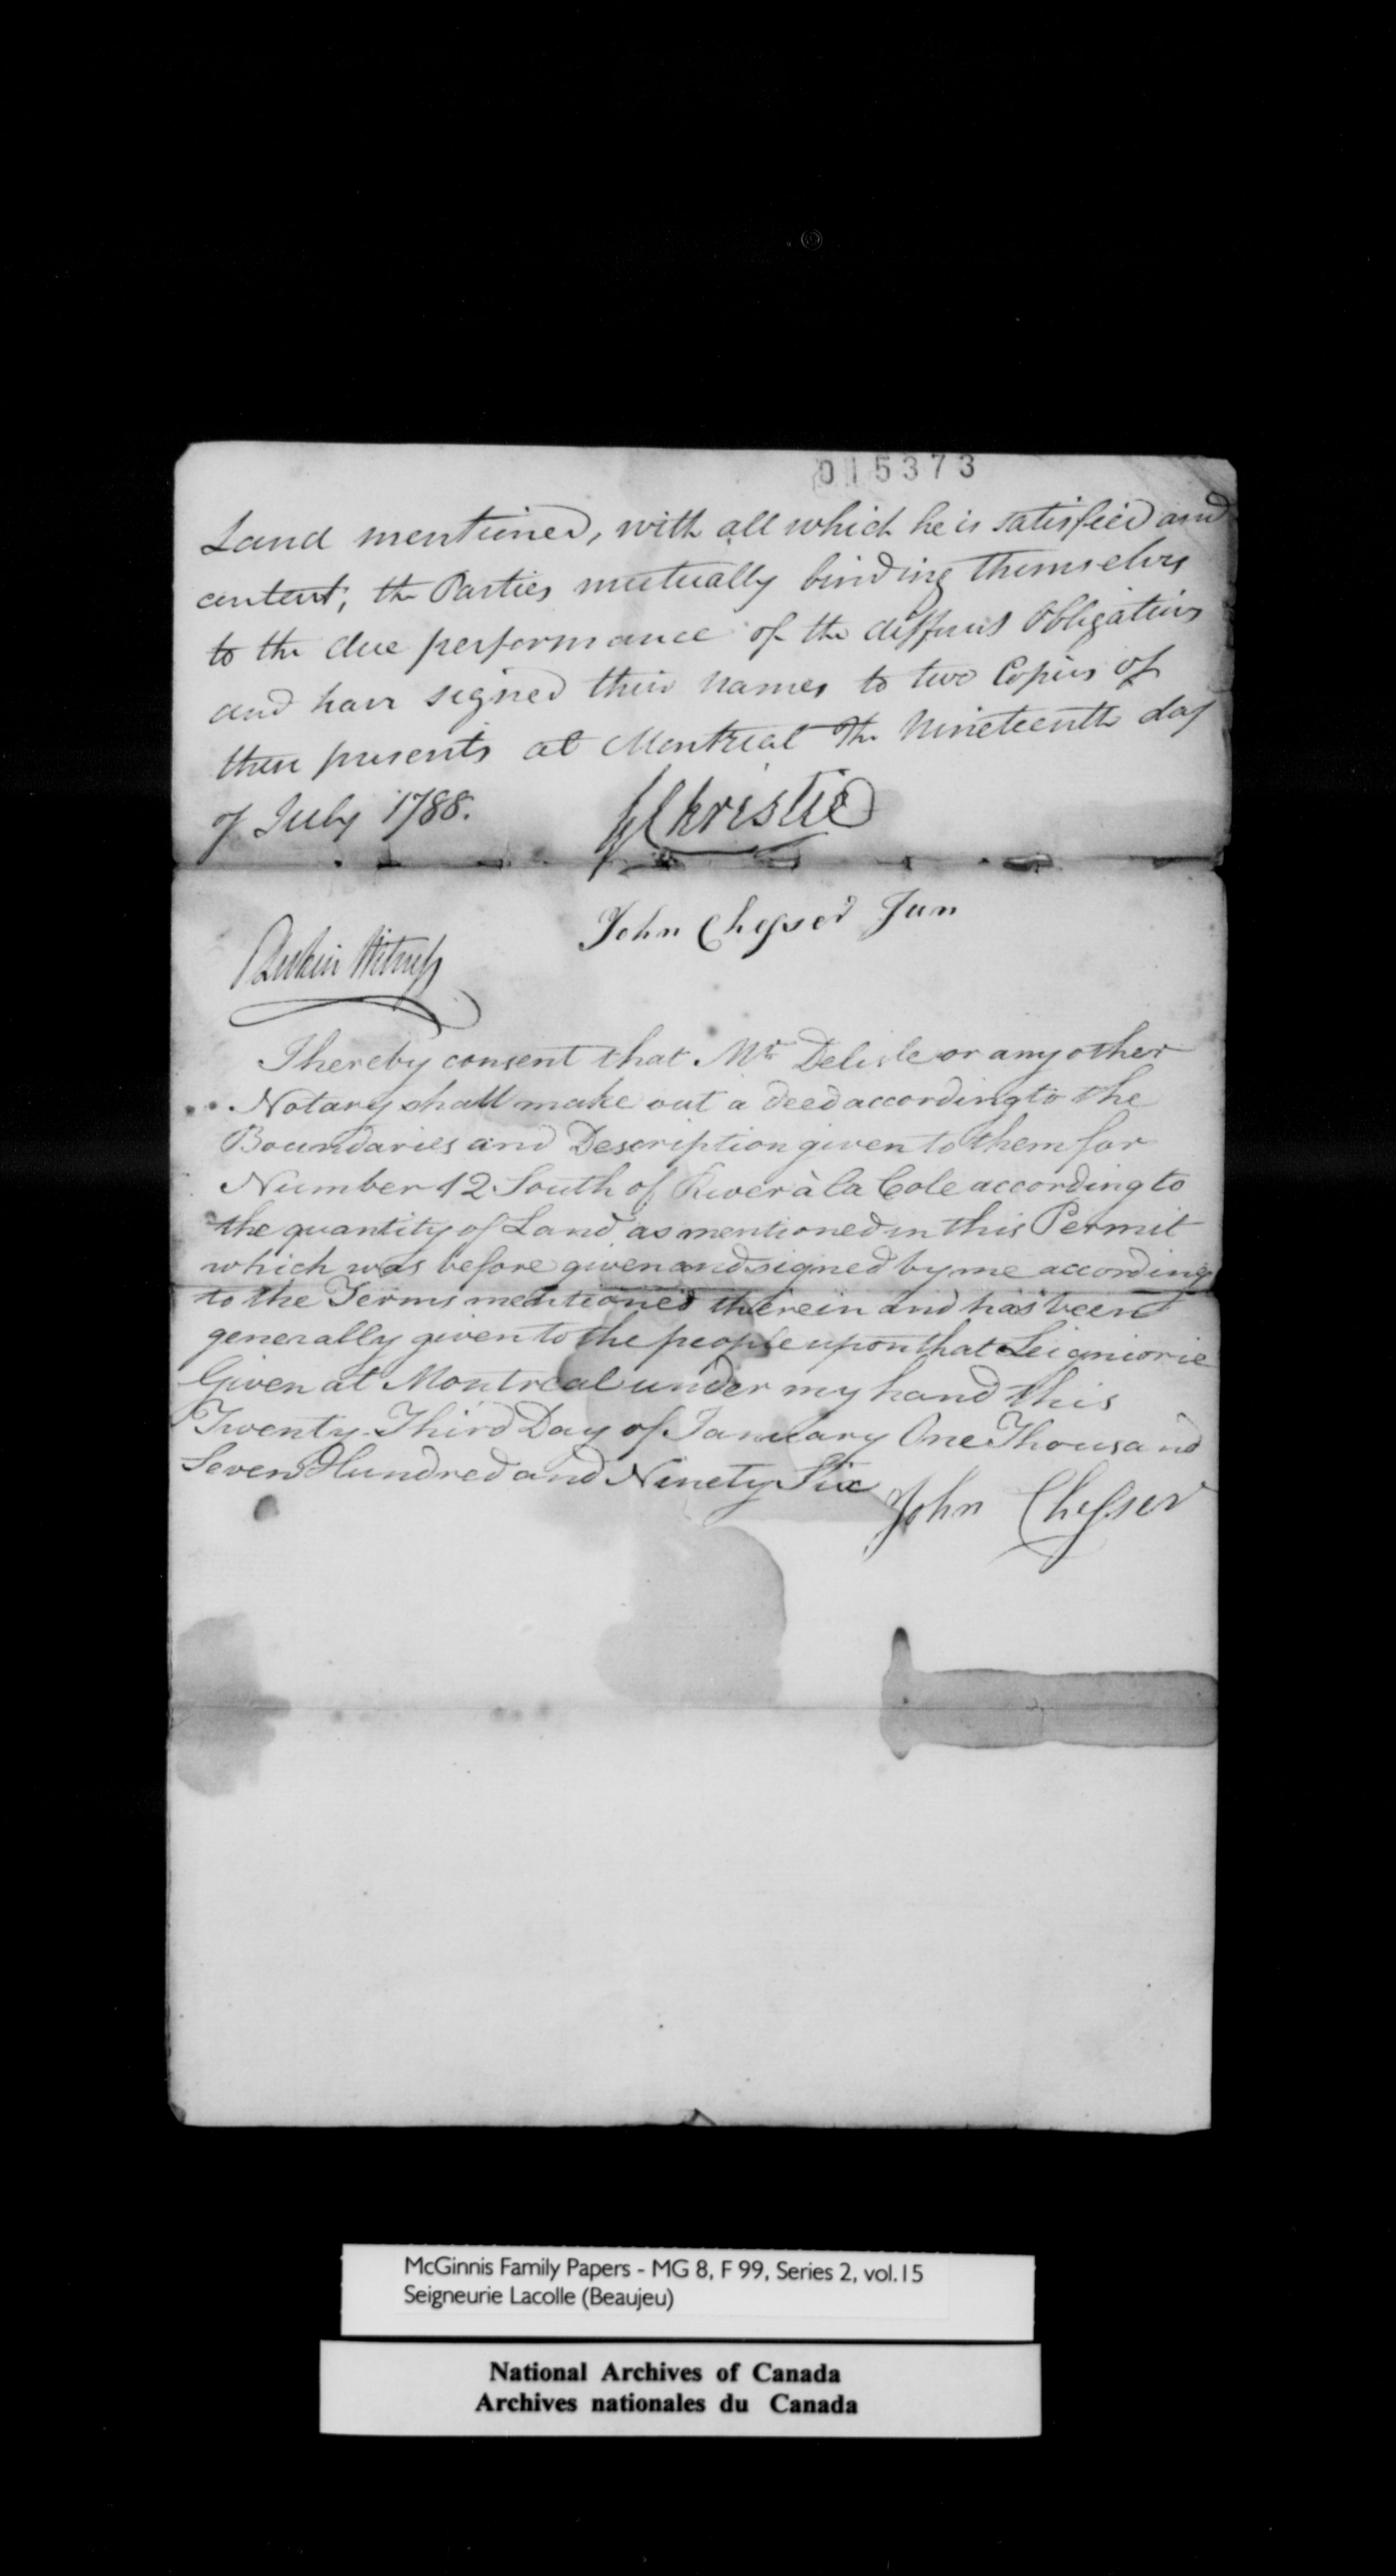 015373
Land mentioned, with all which he is satisfied and
content; the Parties mutually binding themselves
to the due performance of the different Obligations
and have signed their names to two Copies of
these presents at Montreal the Nineteenth day
of July 1788.
G Christie
John Chesser Jun
Witness
I hereby consent that Mr Delisle or any other
Notary shall make out a deed according to the
Boundaries and Description given to them for
Number 12 South of River à la Cole according to
the quantity of Land as mentioned in this Permit
which was before given and signed by me according
to the Terms mentioned therein and has been
generally given to the people upon that Seigniorie
Given at Montreal under my hand this
Twenty-Third Day of January One Thousand
Seven Hundred and Ninety Six
John Chesser
McGinnis Family Papers - MG 8, F 99, Series 2, vol.15
Seigneurie Lacolle (Beaujeu)
National Archives of Canada
Archives nationales du Canada